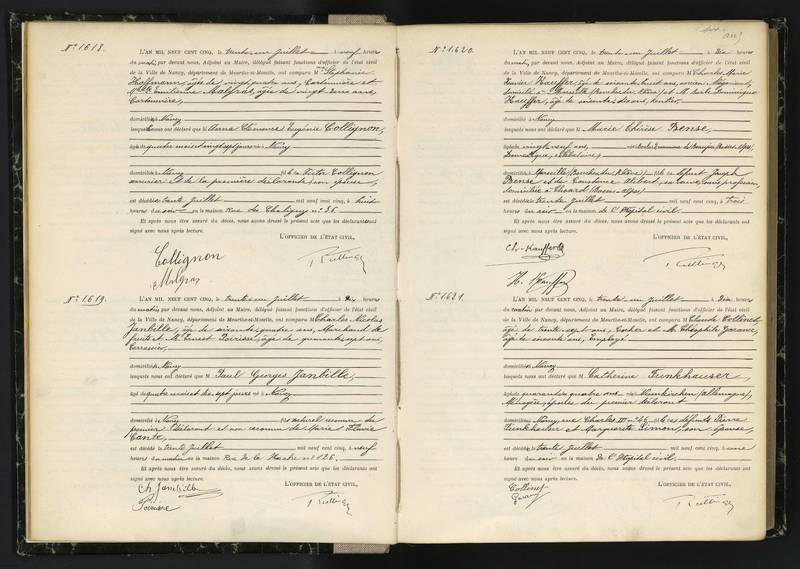 N° 1618.
L'AN MIL NEUF CENT CINQ, le trente-un Juillet à neuf heures
du matin, par devant nous, Adjoint au Maire, délégué faisant fonctions d'officier de l'état civil
de la Ville de Nancy, département de Meurthe-et-Moselle, ont comparu M Stéphanie
Hoffmann, âgée de vingt quatre ans, Cartonnière et
Malgras, âgée de vingt deux ans,
Cartonnière,
domiciliés à Nancy
lesquels nous ont déclaré que M Anna Eugénie Collignon,
âgée de quatre mois et vingt sept jours née à Nancy
domiciliée à Nancy fille de Victor Collignon
armurier et de la première déclarante son épouse,
est décédée le trente Juillet mil neuf cent cinq, à huit
heures du soir en la maison Rue de Chaligny n° 36.
Et après nous être assuré du décès, nous avons dressé le présent acte que les déclarants ont
signé avec nous après lecture.
L'OFFICIER DE L'ÉTAT CIVIL,
Collignon
Malgras
N° 1619.
L'AN MIL NEUF CENT CINQ, le trente-un Juillet à dix heures
du matin, par devant nous, Adjoint au Maire, délégué faisant fonctions d'officier de l'état civil
de la Ville de Nancy, département de Meurthe-et-Moselle, ont comparu M Charles Nicolas
Janbille, âgé de soixante quatre ans, Marchand de
fruits et M. Ernest Poirisse, âgé de quarante sept ans,
domiciliés à Nancy
lesquels nous ont déclaré que M. Paul Georges Janbille,
âgé de quatre mois et dix sept jours né à Nancy
domicilié à Nancy fils naturel reconnu du
premier déclarant et non reconnu de Marie
est décédé le trente Juillet mil neuf cent cinq, à neuf
heures du matin en la maison Rue de la Hache n° 126.
Et après nous être assuré du décès, nous avons dressé le présent acte que les déclarants ont
signé avec nous après lecture.
L'OFFICIER DE L'ÉTAT CIVIL,
Ch Janbille
Poirisse
N° 1620.
L'AN MIL NEUF CENT CINQ, le trente-un Juillet à dix heures
du matin, par devant nous, Adjoint au Maire, délégué faisant fonctions d'officier de l'état civil
de la Ville de Nancy, département de Meurthe-et-Moselle, ont comparu M Charles Marie
Xavier Kaeuffer, âgé de soixante huit ans, ancien
domicilié à Marseille (Bouches du Rhône) et M. Dominique
Kaeuffer, âgé de soixante dix ans, rentier,
domicilié à Nancy
lesquels nous ont déclaré que M Marie Thérèse Bense,
âgée de vingt neuf ans, née
Domestique, célibataire,
domiciliée à Marseille (Bouches du Rhône) fille de défunt Joseph
Bense et de Constance sa veuve, sans profession,
domiciliée à
est décédée le trente Juillet mil neuf cent cinq, à trois
heures du soir en la maison de l'Hôpital civil.
Et après nous être assuré du décès, nous avons dressé le présent acte que les déclarants ont
signé avec nous après lecture.
L'OFFICIER DE L'ÉTAT CIVIL,
N° 1621.
L'AN MIL NEUF CENT CINQ, le trente-un Juillet à dix heures
du matin, par devant nous, Adjoint au Maire, délégué faisant fonctions d'officier de l'état civil
de la Ville de Nancy, département de Meurthe-et-Moselle, ont comparu M Claude Collenot,
âgé de trente sept ans, Cocher et M. Théophile Garany,
âgé de cinquante ans, employé
domiciliés à Nancy
lesquels nous ont déclaré que M Catherine Funkhauser,
âgée de quarante quatre ans née à Neunkirchen (allemagne),
Ménagère, épouse du premier déclarant
domiciliée à Nancy, rue Charles III n° 46 fille des défunts Pierre
Funkhauser et Marguerite Simon, son épouse,
est décédée le trente Juillet mil neuf cent cinq, à une
heure du soir en la maison de l'Hôpital civil.
Et après nous être assuré du décès, nous avons dressé le présent acte que les déclarants ont
signé avec nous après lecture.
L'OFFICIER DE L'ÉTAT CIVIL,
Collenot
Garany